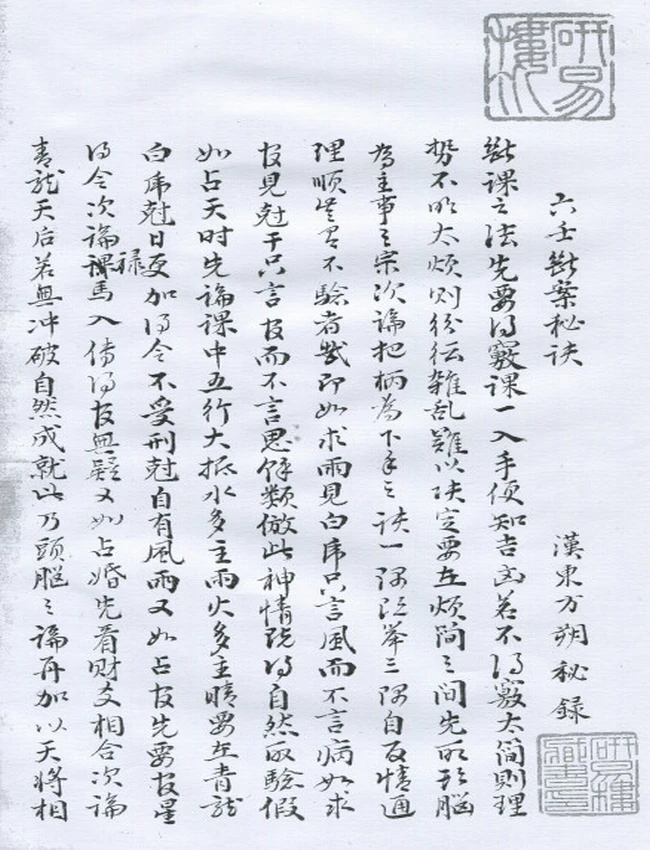 研易樓
六壬斷案秘诀
漢東方朔秘錄
研易樓藏書印
斷課之法先要得竅課一入手便知吉凶若不得竅太简則理
势不明太烦则纷纭雜乱難以决定要在烦简之间先明头脑
為主事之宗次論把柄為下手之诀一隅既举三隅自反情通
理順岂有不驗者哉即如求雨見白虎只言風而不言病如求
官見尅干只言官而不言鬼餘類倣此神情既得自然取驗假
如占天时先論課中五行大振水多主雨火多主晴要在青龍
白虎尅日更加得令不受刑尅自有風雨又如占官先要官星
得令次論禄馬入传得官無疑又如占婚先看财爻相合次論
青龍天后若無冲破自然成就此乃頭腦之論再加以天将相